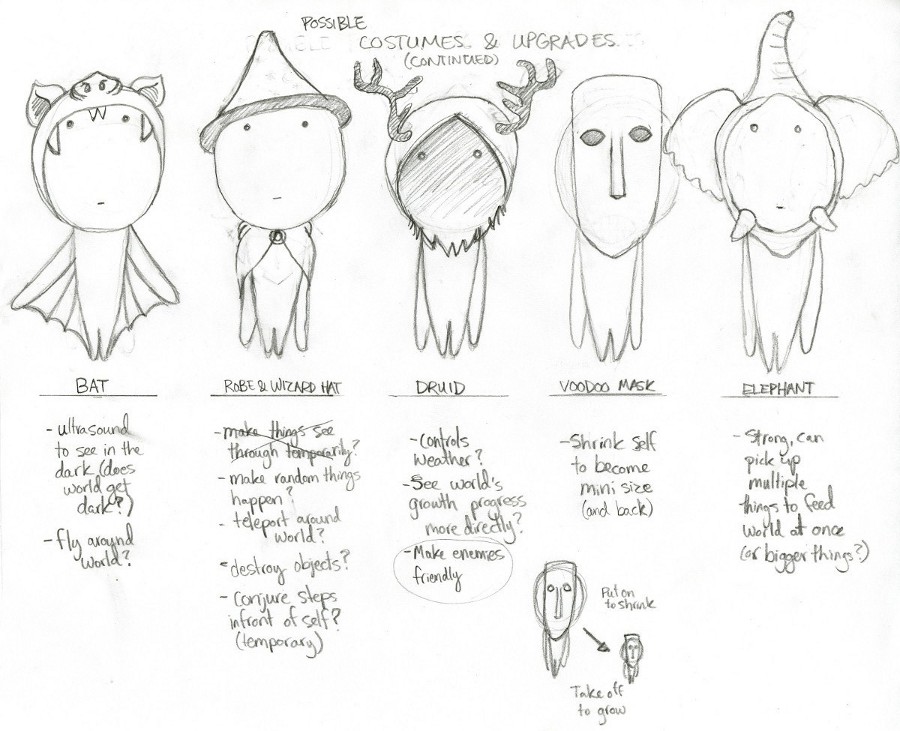 POSSIBLE
COSTUMES & UPGRADES
(CONTINUED)
BAT
- ultrasound
to see in the
dark (does
world get
dark?)
- fly around
world?
ROBE & WIZARD HAT
- make things see
through temporarily?
- make random things
happen?
- teleport around
world?
- destroy objects?
- Conjure steps
infront of self?
(temporary)
DRUID
- Controls
weather?
- See world's
growth progress
more directly?
- Make enemies
friendly
VOODOO MASK
- Shrink self
to become
mini size
(and back)
Put on
to shrink
Take off
to grow
ELEPHANT
- Strong, can
pick up
multiple
things to feed
world at once
(or bigger things?)